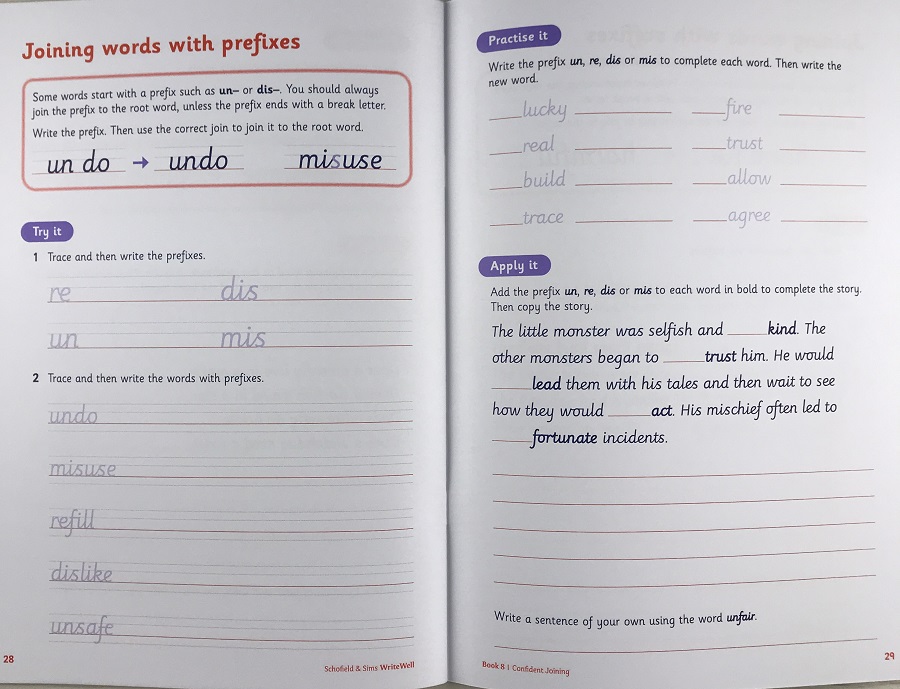 Joining words with prefixes
Some words start with a prefix such as un– or dis–. You should always
join the prefix to the root word, unless the prefix ends with a break letter.
Write the prefix. Then use the correct join to join it to the root word.
un do → undo misuse
Try it
1 Trace and then write the prefixes.
re dis
un mis
2 Trace and then write the words with prefixes.
undo
misuse
refill
dislike
unsafe
28
Schofield & Sims WriteWell
Practise it
Write the prefix un, re, dis or mis to complete each word. Then write the
new word.
___lucky ___fire
___real ___trust
___build ___allow
___trace ___agree
Apply it
Add the prefix un, re, dis or mis to each word in bold to complete the story.
Then copy the story.
The little monster was selfish and ___kind. The
other monsters began to ___trust him. He would
___lead them with his tales and then wait to see
how they would ___act. His mischief often led to
___fortunate incidents.
Write a sentence of your own using the word unfair.
Book 8 | Confident Joining
29